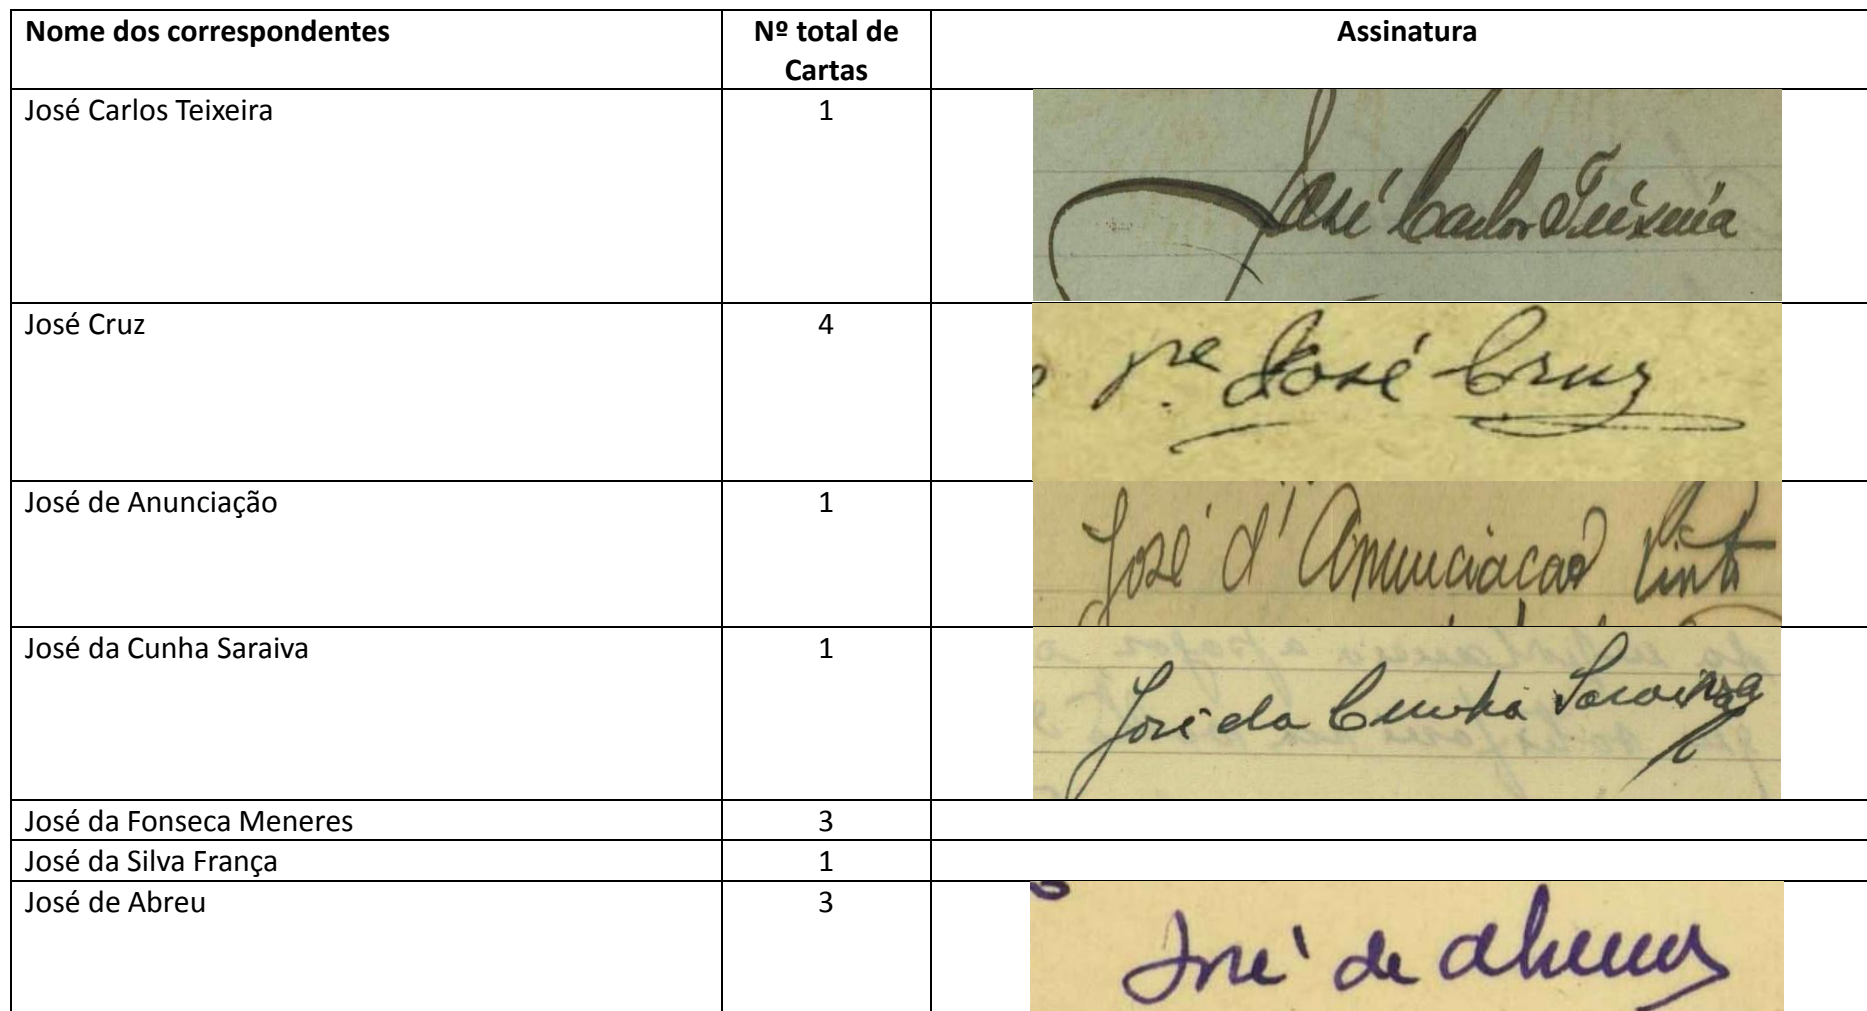 Nome dos correspondentes Nº total de Cartas Assinatura
José Carlos Teixeira 1 José Carlos Teixeira
José Cruz 4 Pe. José Cruz
José de Anunciação 1 José d'Anunciacao Pinto
José da Cunha Saraiva 1 José da Cunha Saraiva
José da Fonseca Meneres 3
José da Silva França 1
José de Abreu 3 José de Abreu